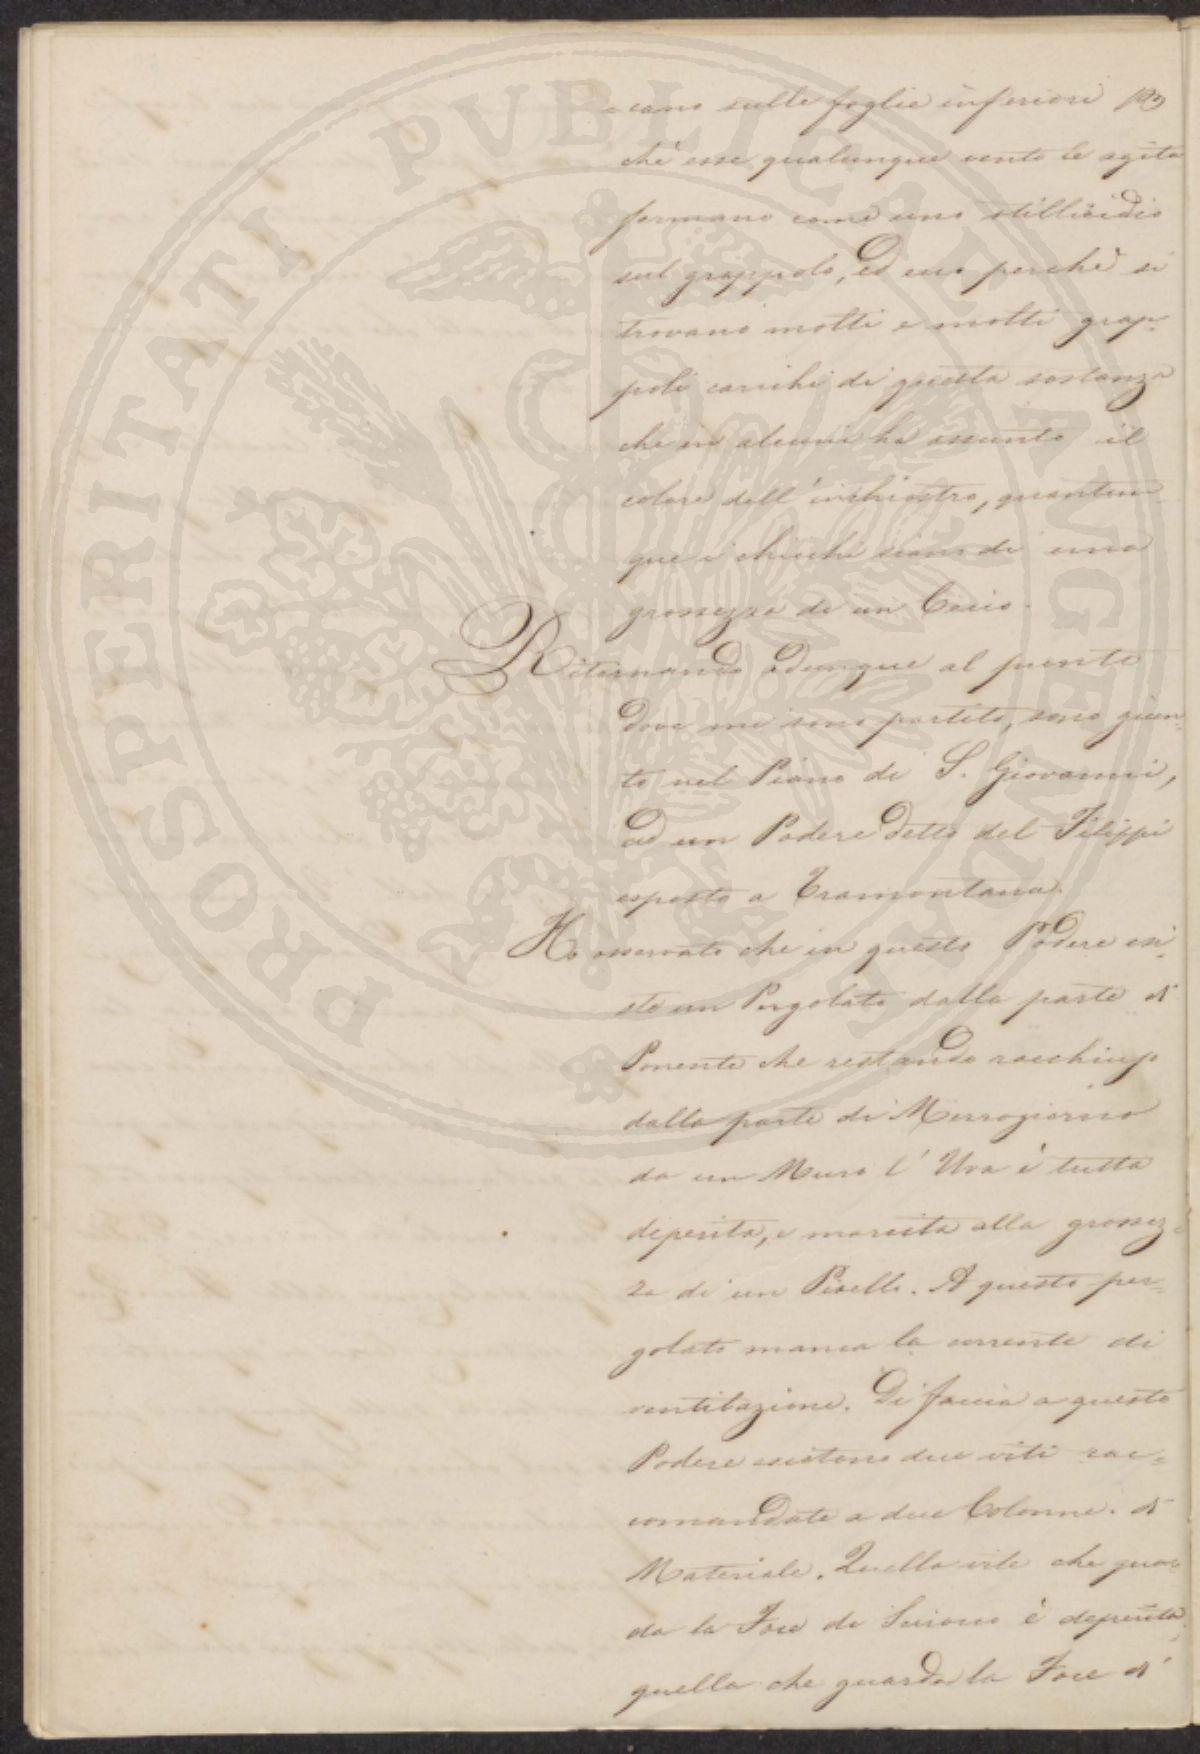 =cano sulle foglie inferiori per
chè esse qualunque vento le agita
formano come uno stillicidio
sul grappolo, ed ecco perchè si
trovano molti e molti grap=
poli carichi di questa sostanza
che in alcuni ha assunto il
colore dell'inchiostro, quantun
que i chicchi siano di una
grossezza di un Cecio.
Ritornando adunque al punto
dove mi sono partito, sono giun=
to nel Piano di S. Giovanni,
ad un Podere detto del Filippi
esposto a Tramontana.
Ho osservato che in questo Podere esi=
ste un Pergolato dalla parte di
Ponente che restando racchiuso
dalla parte di Mezzogiorno
da un Muro l'Uva è tutta
deperita, e marcita alla grossez=
za di un Pisello. A questo per=
golato manca la corrente di
ventilazione. Di faccia a questo
Podere esistono due viti rac=
comandate a due Colonne di
Materiale. Quella vite che guar=
da la Foce di Scirocco è deperita,
quella che guarda la Foce di
PROSPERITATI PVBLICAE AVGENDAE